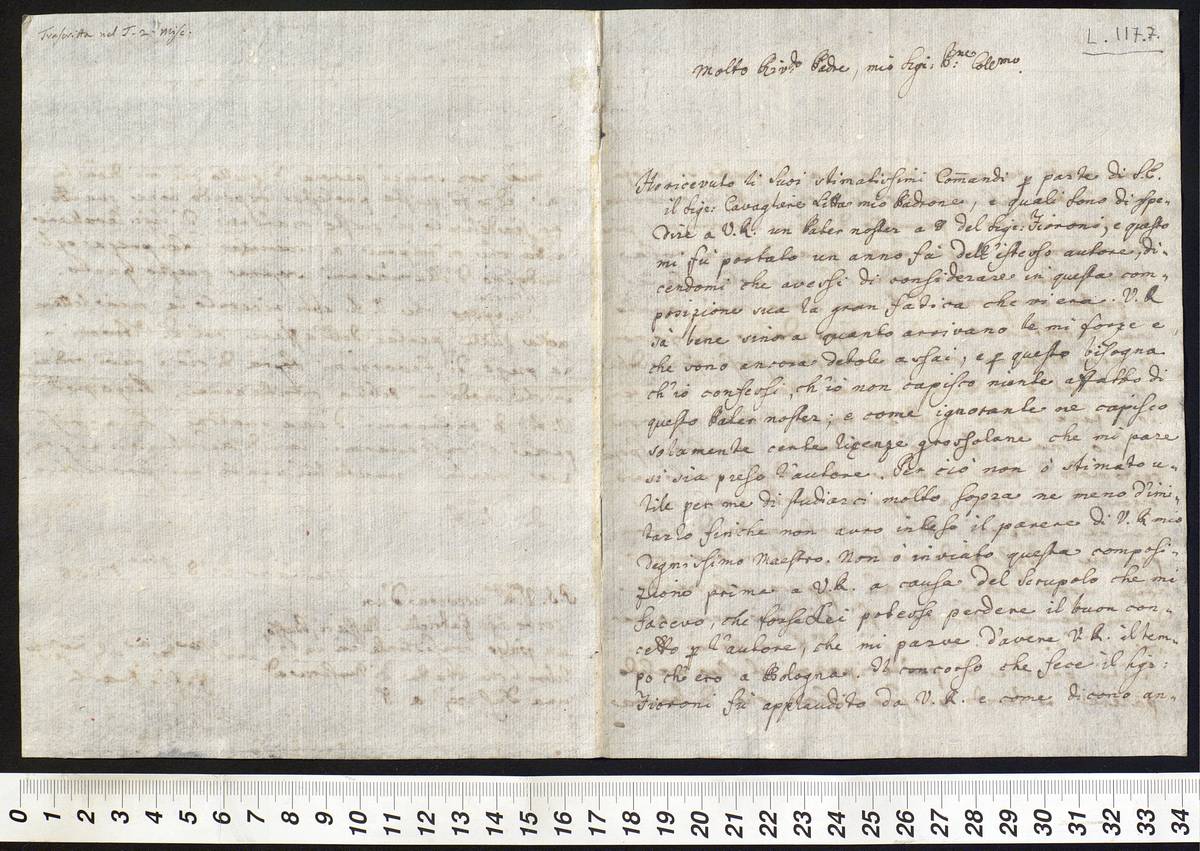 Trascritta nel T. 2º Misc.
L. 117.7.
Molto Rivdo Padre, mio Sigr: Pne: Colemo.
Ho ricevuto li suoi stimatissimi Comandi p parte di S.E.
il Sigr: Cavagliere Litta mio Padrone, e quali sono di spe-
dire a V.R. un Pater noster a 8 del Sigr: Fioroni; e questo
mi fù portato un anno fà dell'istesso autore, di-
cendomi che avessi di considerare in questa com-
posizione sua la gran fadica che vi era. V.R
sà bene sinora quanto arrivano le mi forze e,
che sono ancora debole assai, e p questo bisogna
ch'io confessi, ch'io non capisco niente affatto di
questo Pater noster; e come ignorante ne capisco
solamente certe licenze grossolane che mi pare
si sia preso l'autore. Per ciò non ò stimato u-
tile per me di studiarci molto sopra ne meno d'imi-
tarlo finche non avro inteso il parere di V.R mio
Degnissimo Maestro. Non ò inviato questa composi-
zione prima a V.R. a causa del Scrupolo che mi
facevo, che forse Lei potesse perdere il buon con-
cetto p l'autore, che mi parve d'avere V.R. il tem-
po ch'ero a Bologna. Il concorso che fece il Sigr:
Fioroni fù applaudito da V.R. e come dicono an-